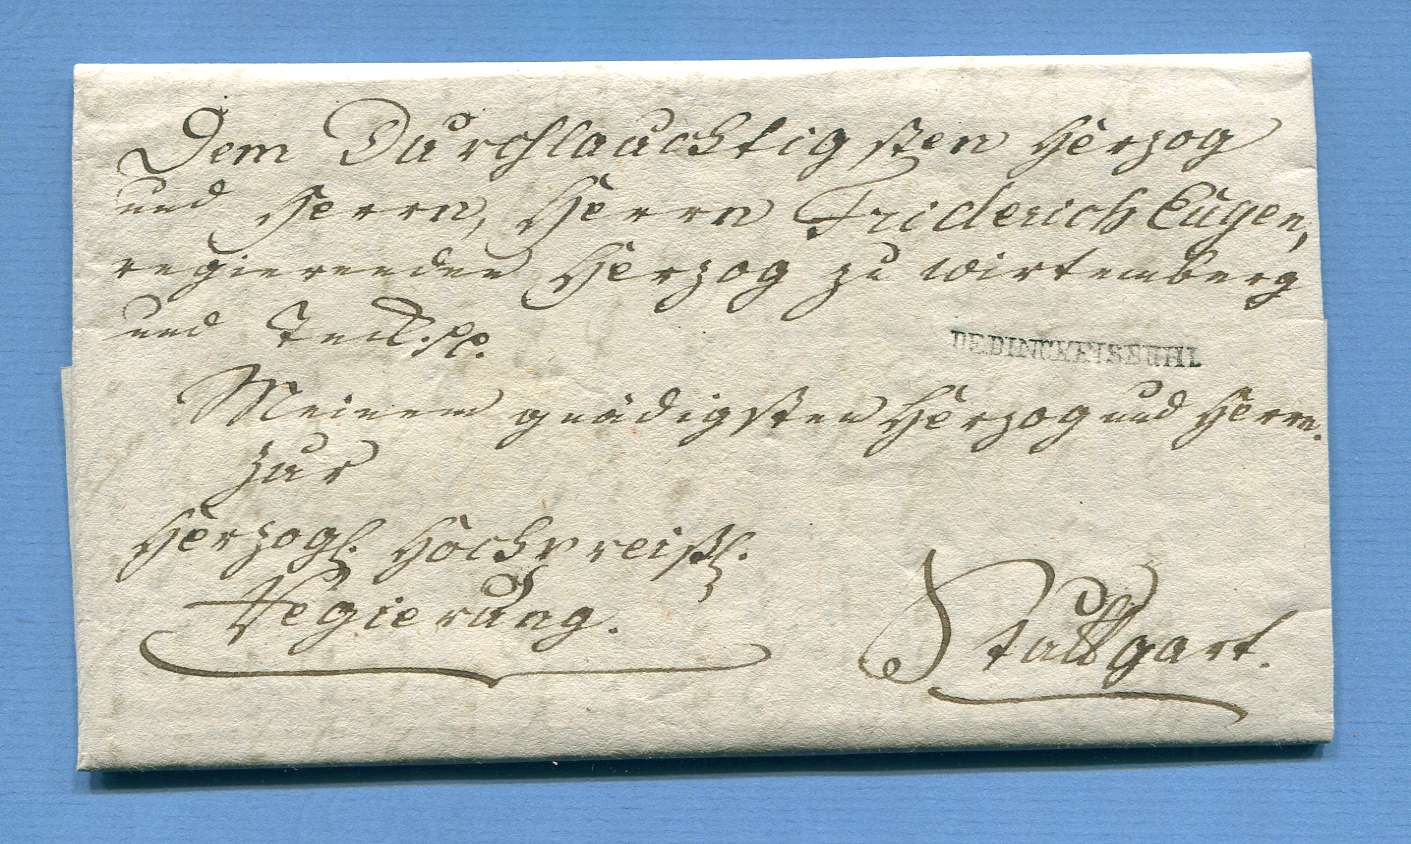 Dem Durchlauchtigsten Herzog
und Herrn, Herrn Friderich Eugen,
regierenden Herzog zu Wirtemberg
und Teck. pp.
DE DINCKELSBUHL
Meinem gnädigsten Herzog und Herrn.
zur
Herzogl. Hochpreißl.
Regierung.
Stuttgart.